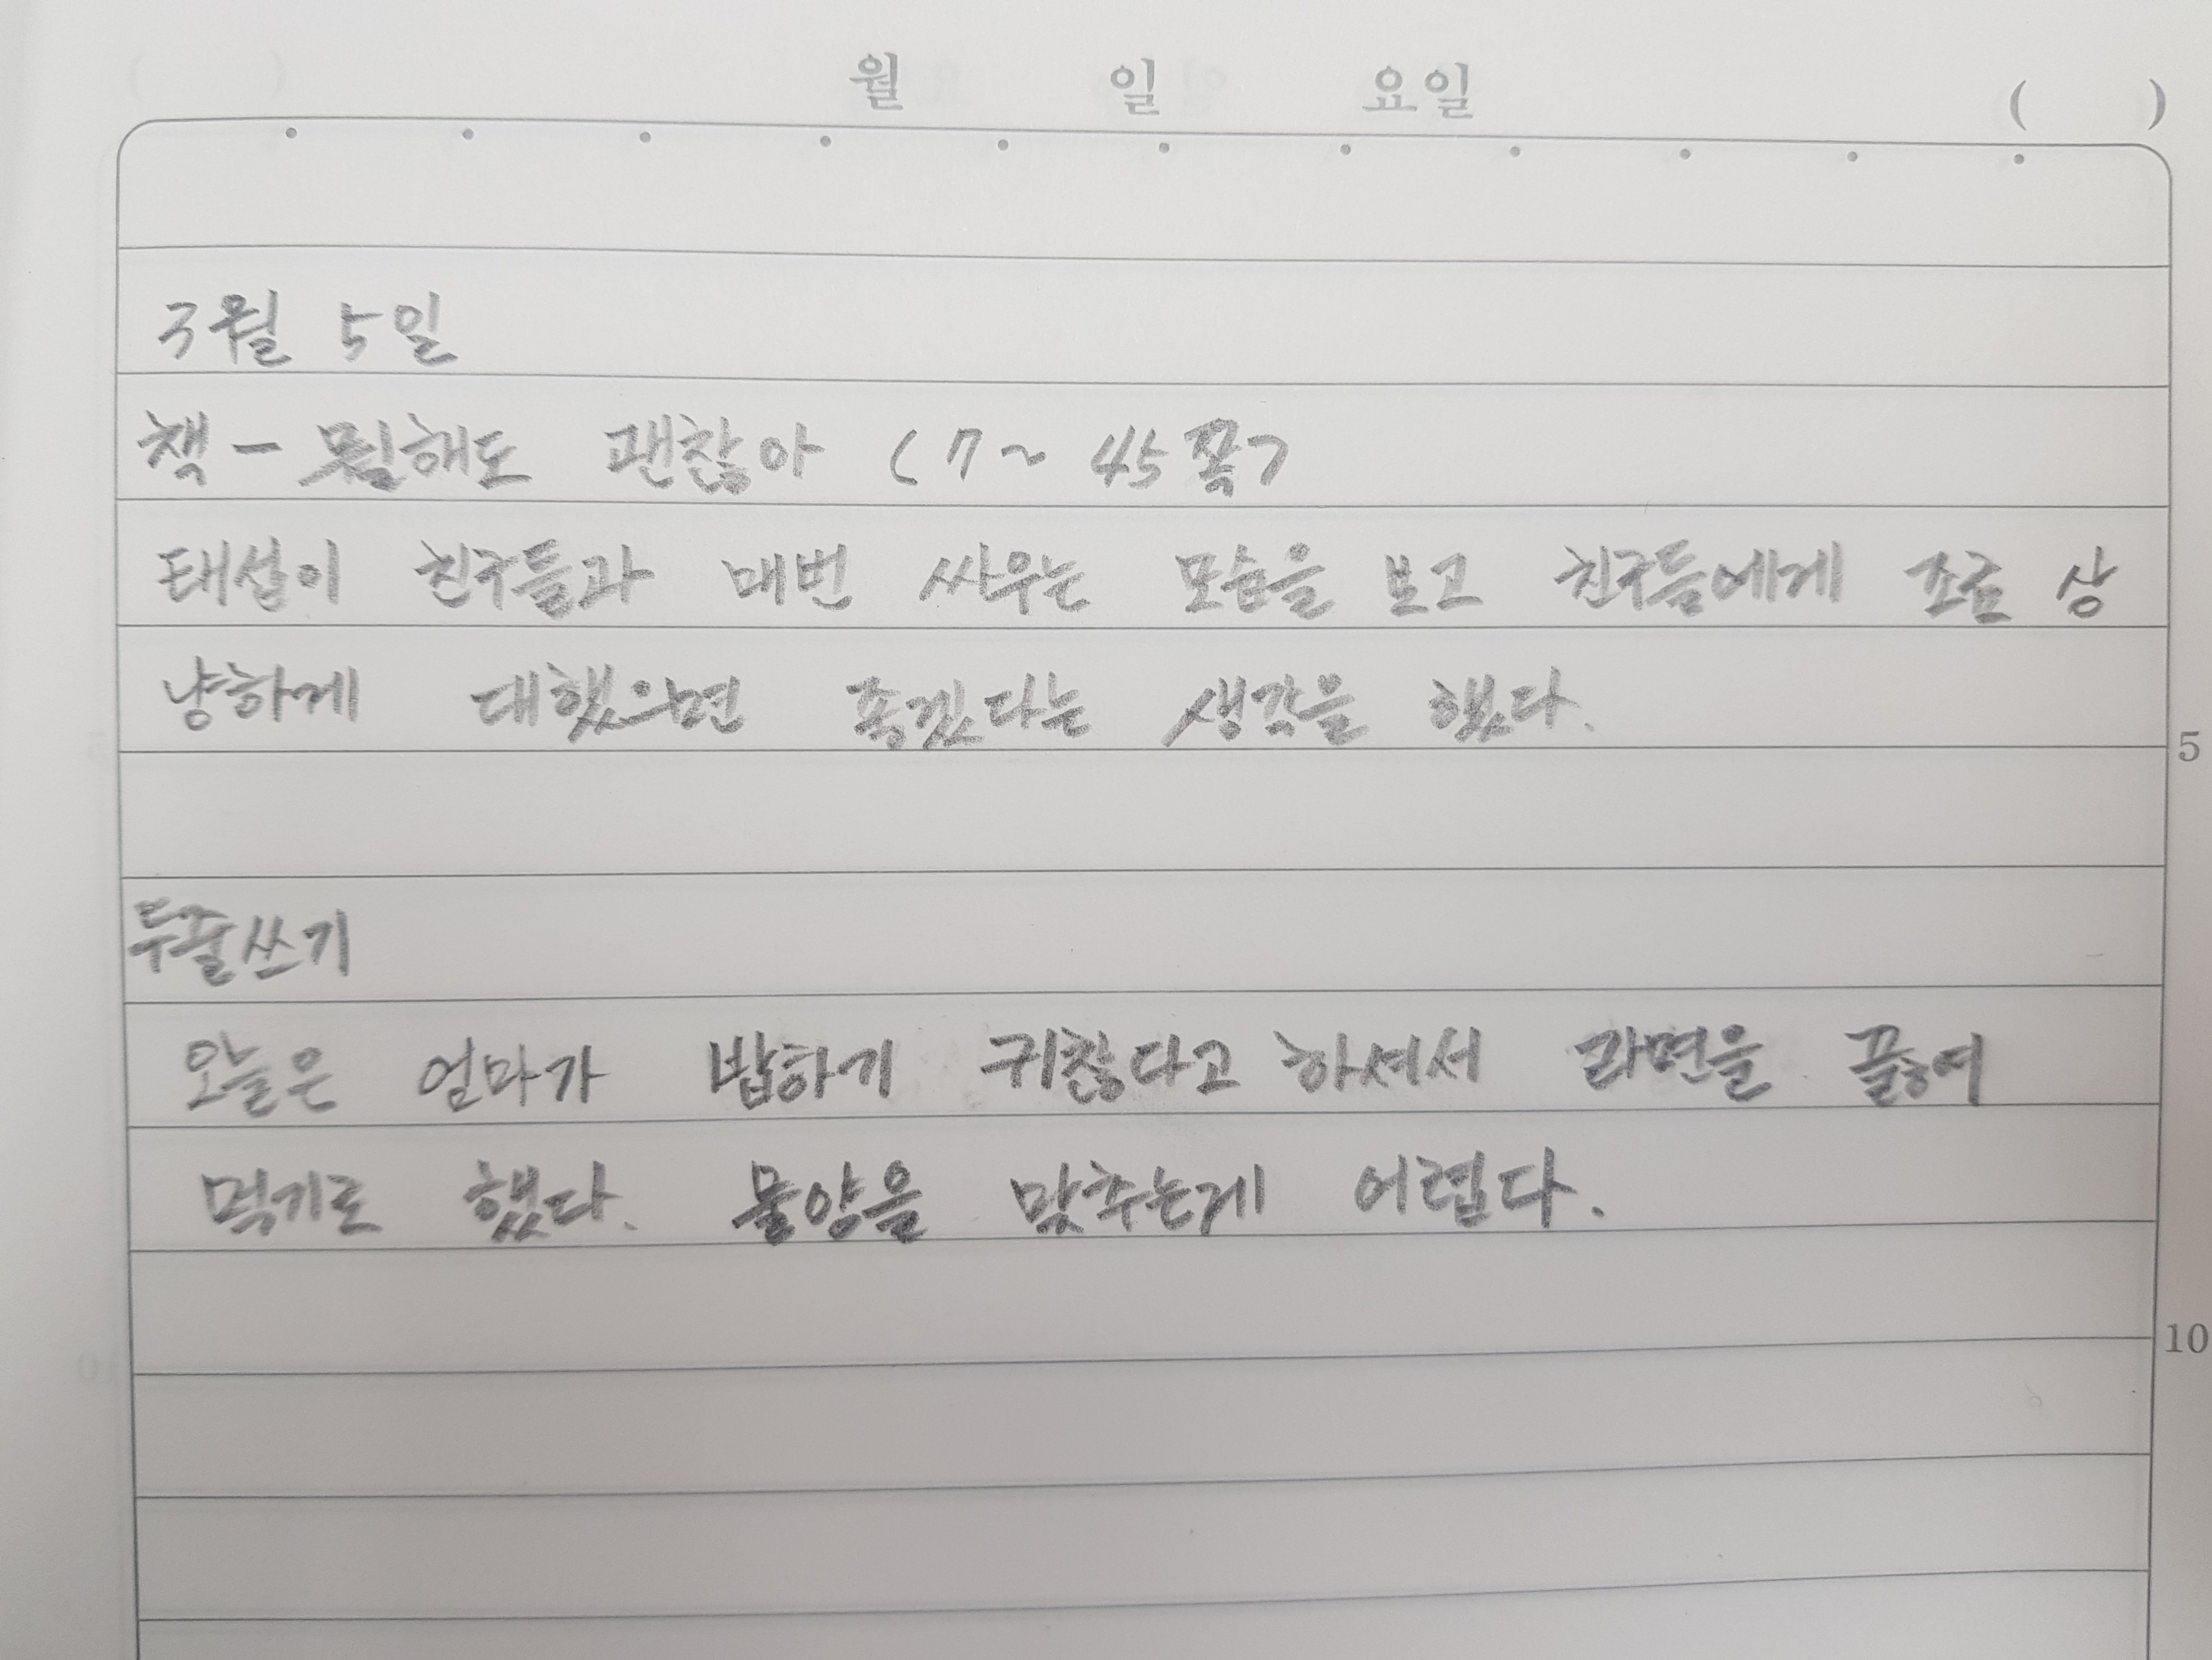 월 일 요일 ( )
3월 5일
책 - 뭘해도 괜찮아 (7~ 45쪽)
태섭이 친구들과 매번 싸우는 모습을 보고 친구들에게 조금 상
냥하게 대했으면 좋겠다는 생각을 했다.
5
두줄쓰기
오늘은 엄마가 밥하기 귀찮다고 하셔서 라면을 끓여
먹기로 했다. 물양을 맞추는게 어렵다.
10